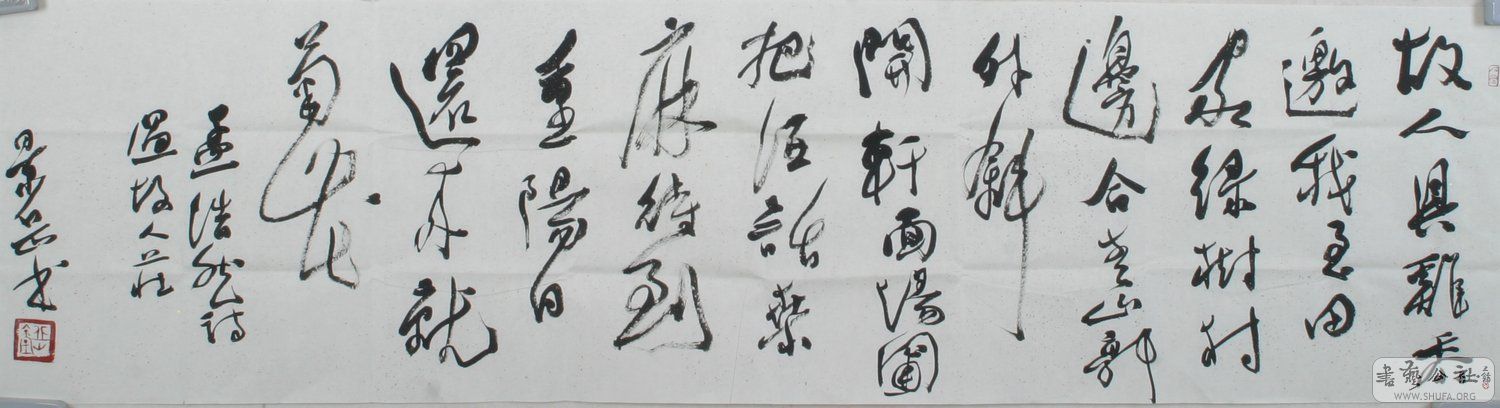 故人具雞黍
邀我至田
家綠樹村
邊合青山郭
外斜
開軒面場圃
把酒話桑
麻待到
重陽日
還來就
菊花
孟浩然詩
過故人莊
景书
書藝公社
WWW.SHUFA.ORG